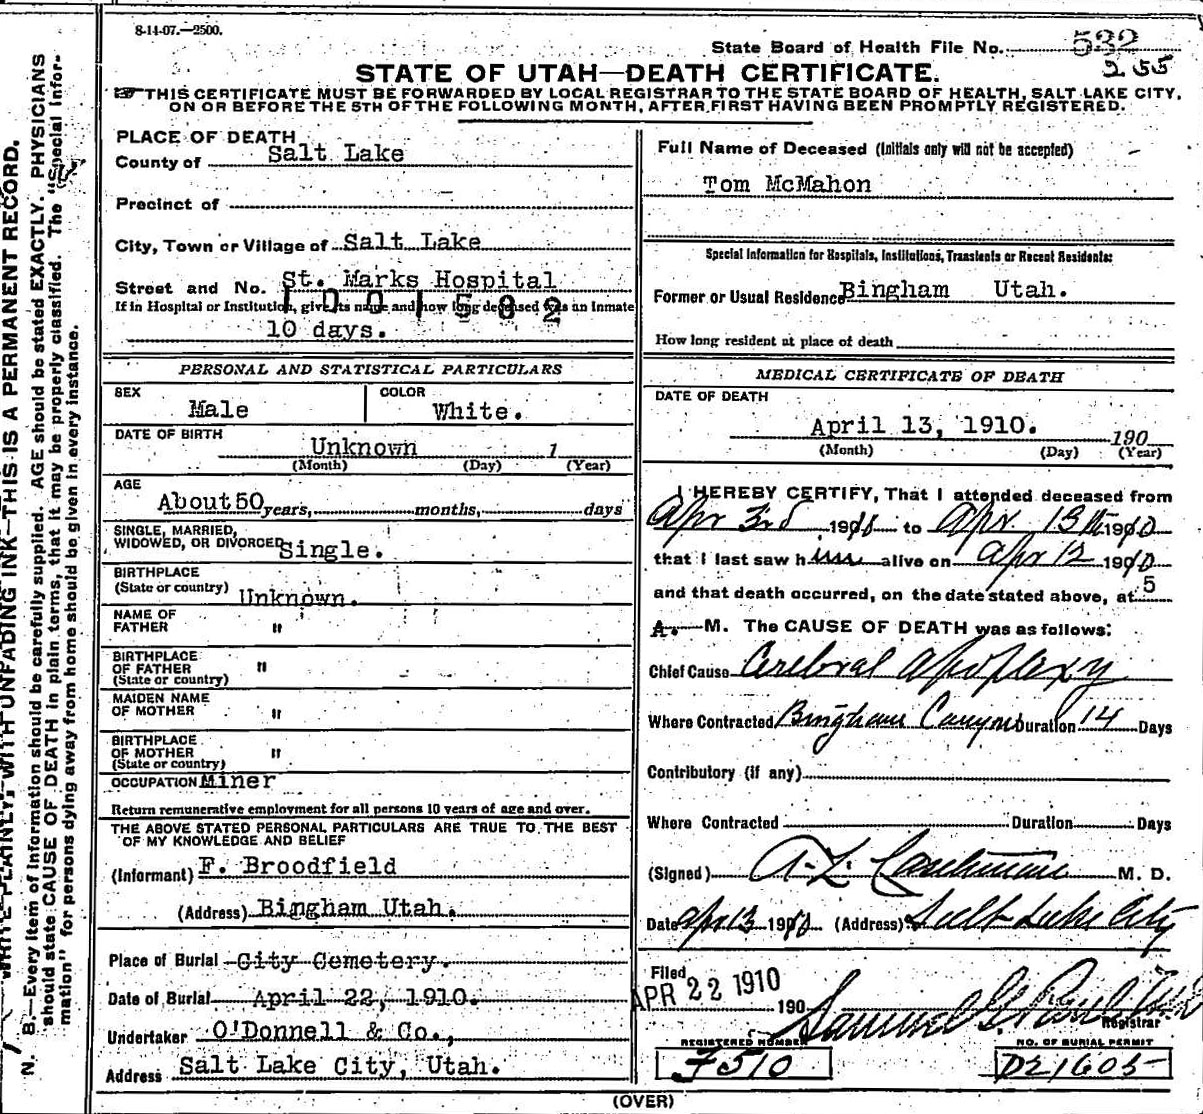 8-14-07.—2500.
State Board of Health File No. 532
255
STATE OF UTAH—DEATH CERTIFICATE.
THIS CERTIFICATE MUST BE FORWARDED BY LOCAL REGISTRAR TO THE STATE BOARD OF HEALTH, SALT LAKE CITY,
ON OR BEFORE THE 5TH OF THE FOLLOWING MONTH, AFTER FIRST HAVING BEEN PROMPTLY REGISTERED.
PLACE OF DEATH
County of Salt Lake
Precinct of
City, Town or Village of Salt Lake
Street and No. St. Marks Hospital
1001582
If in Hospital or Institution, give its name and how long deceased was an Inmate
10 days.
PERSONAL AND STATISTICAL PARTICULARS
SEX Male COLOR White.
DATE OF BIRTH Unknown 1
(Month) (Day) (Year)
AGE
About 50 years, months, days
SINGLE, MARRIED,
WIDOWED, OR DIVORCED Single.
BIRTHPLACE
(State or country) Unknown.
NAME OF
FATHER "
BIRTHPLACE
OF FATHER "
(State or country)
MAIDEN NAME
OF MOTHER "
BIRTHPLACE
OF MOTHER "
(State or country)
OCCUPATION Miner
Return remunerative employment for all persons 10 years of age and over.
THE ABOVE STATED PERSONAL PARTICULARS ARE TRUE TO THE BEST
OF MY KNOWLEDGE AND BELIEF
(Informant) F. Broodfield
(Address) Bingham Utah.
Place of Burial City Cemetery.
Date of Burial April 22, 1910.
Undertaker O'Donnell & Co.,
Address Salt Lake City, Utah.
Full Name of Deceased (Initials only will not be accepted)
Tom McMahon
Special Information for Hospitals, Institutions, Transients or Recent Residents:
Former or Usual Residence Bingham Utah.
How long resident at place of death
MEDICAL CERTIFICATE OF DEATH
DATE OF DEATH
April 13, 1910. 190
(Month) (Day) (Year)
I HEREBY CERTIFY, That I attended deceased from
Apr 3rd 1910 to Apr. 13th 1910
that I last saw him alive on Apr 12 1910
and that death occurred, on the date stated above, at 5
A. M. The CAUSE OF DEATH was as follows:
Chief Cause Cerebral apoplexy
Where Contracted Bingham Canyon Duration 14 Days
Contributory (if any)
Where Contracted Duration Days
(Signed) M. D.
Date Apr 13 1910 (Address) Salt Lake City
Filed
APR 22 1910 190
Samuel G. Registrar
REGISTERED NUMBER NO. OF BURIAL PERMIT
F510 D21605
(OVER)
WRITE PLAINLY, WITH UNFADING INK—THIS IS A PERMANENT RECORD.
N. B.—Every item of information should be carefully supplied. AGE should be stated EXACTLY. PHYSICIANS
should state CAUSE OF DEATH in plain terms, that it may be properly classified. The "Special Infor-
mation" for persons dying away from home should be given in every instance.